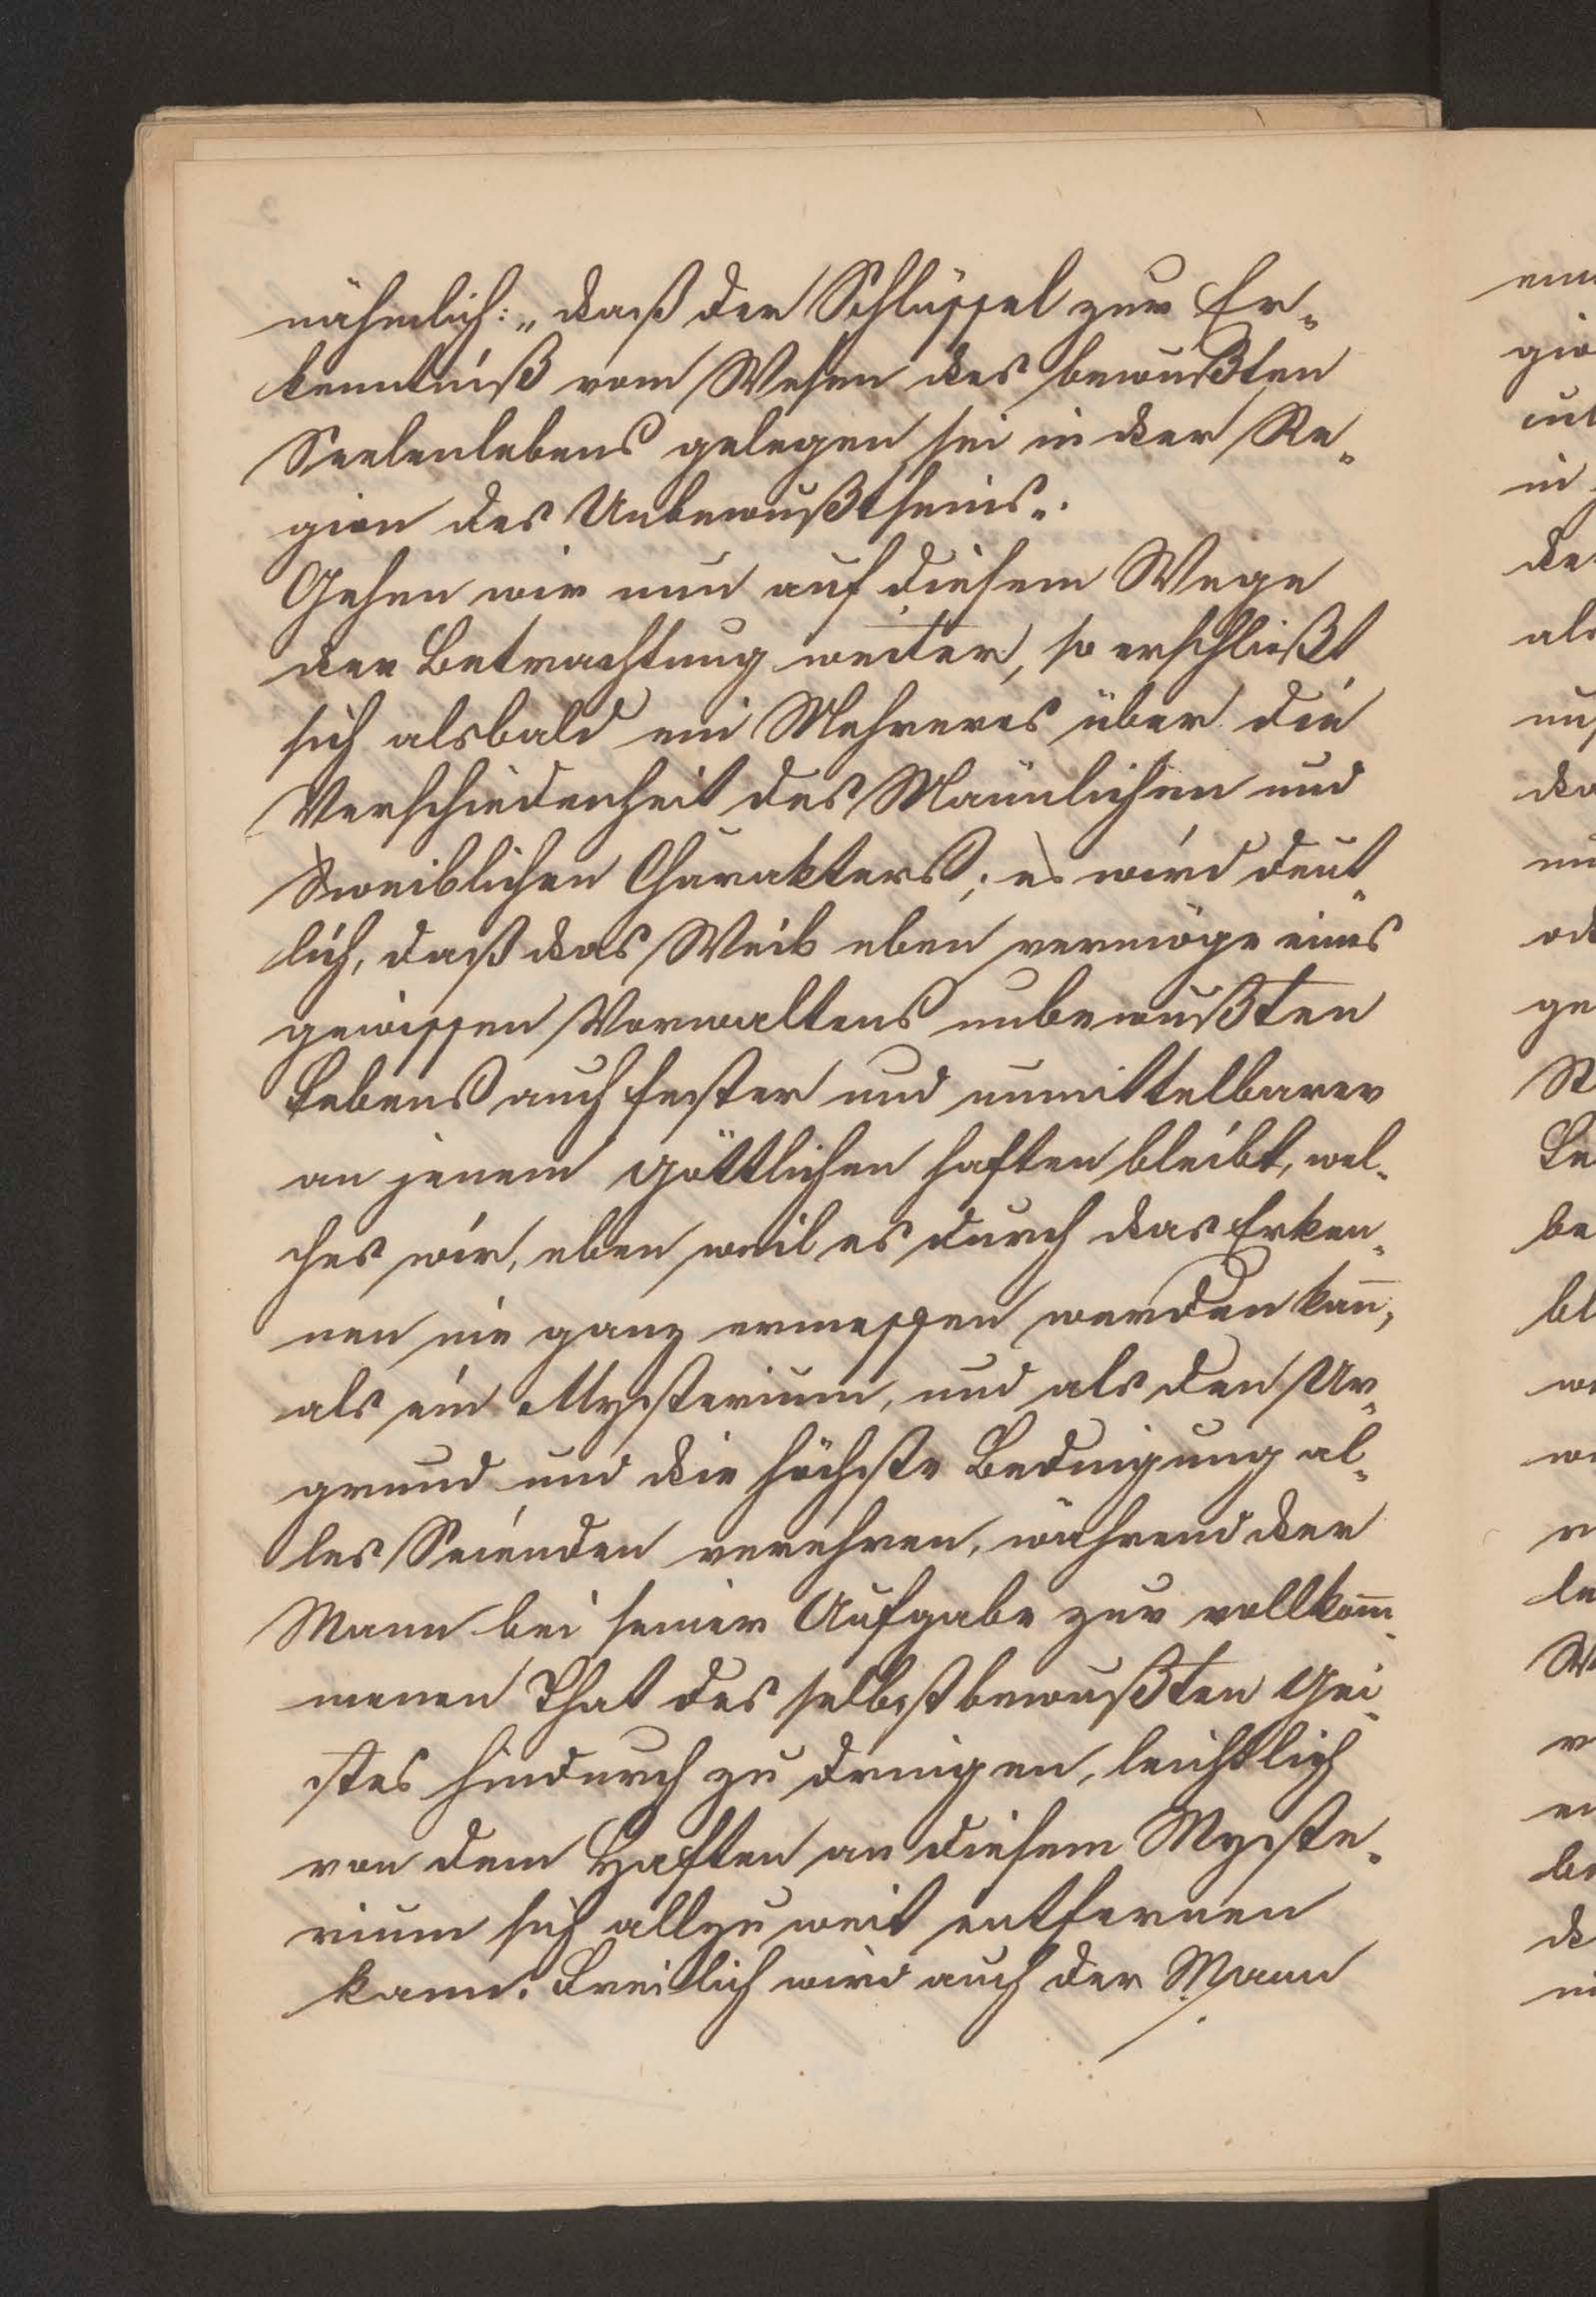 nähmlich: „daß der Schlüssel zur Er-
kenntniß vom Wesen des bewußten
Seelenlebens gelegen sei in der Re-
gion des Unbewußtseins„.
Gehen wir nun auf diesem Wege
der Betrachtung weiter, so erschließt
sich alsbald ein Mehreres über die
Verschiedenheit des Männlichen und
weiblichen Charakters; es wird deut-
lich, daß das Weib eben vermöge eines
gewissen Vorwaltens unbewußten
Lebens auch fester und unmittelbarer
an jenem göttlichen haften bleibt, wel-
ches wir, eben weil es durch das Erken-
nen nie ganz ermessen werden kan̄,
als ein Mysterium, und als den Ur-
grund und die höchste Bedingung al-
les Seienden verehren, während der
Mann bei seiner Aufgabe zur vollkom̄-
menen That des selbstbewußten Gei-
stes hindurch zu dringen, leichtlich
von dem Haften an diesem Myste-
rium sich allzu weit entfernen
kann. Freilich wird auch der Mann